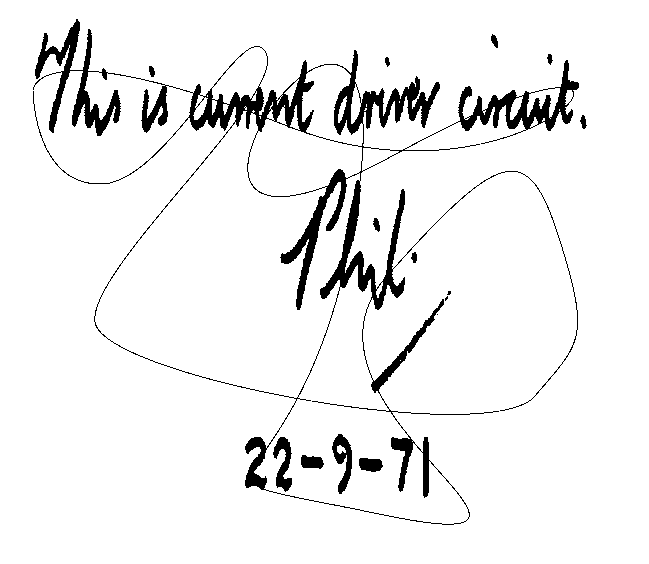 This is current driver circuit.
Phil.
22-9-71